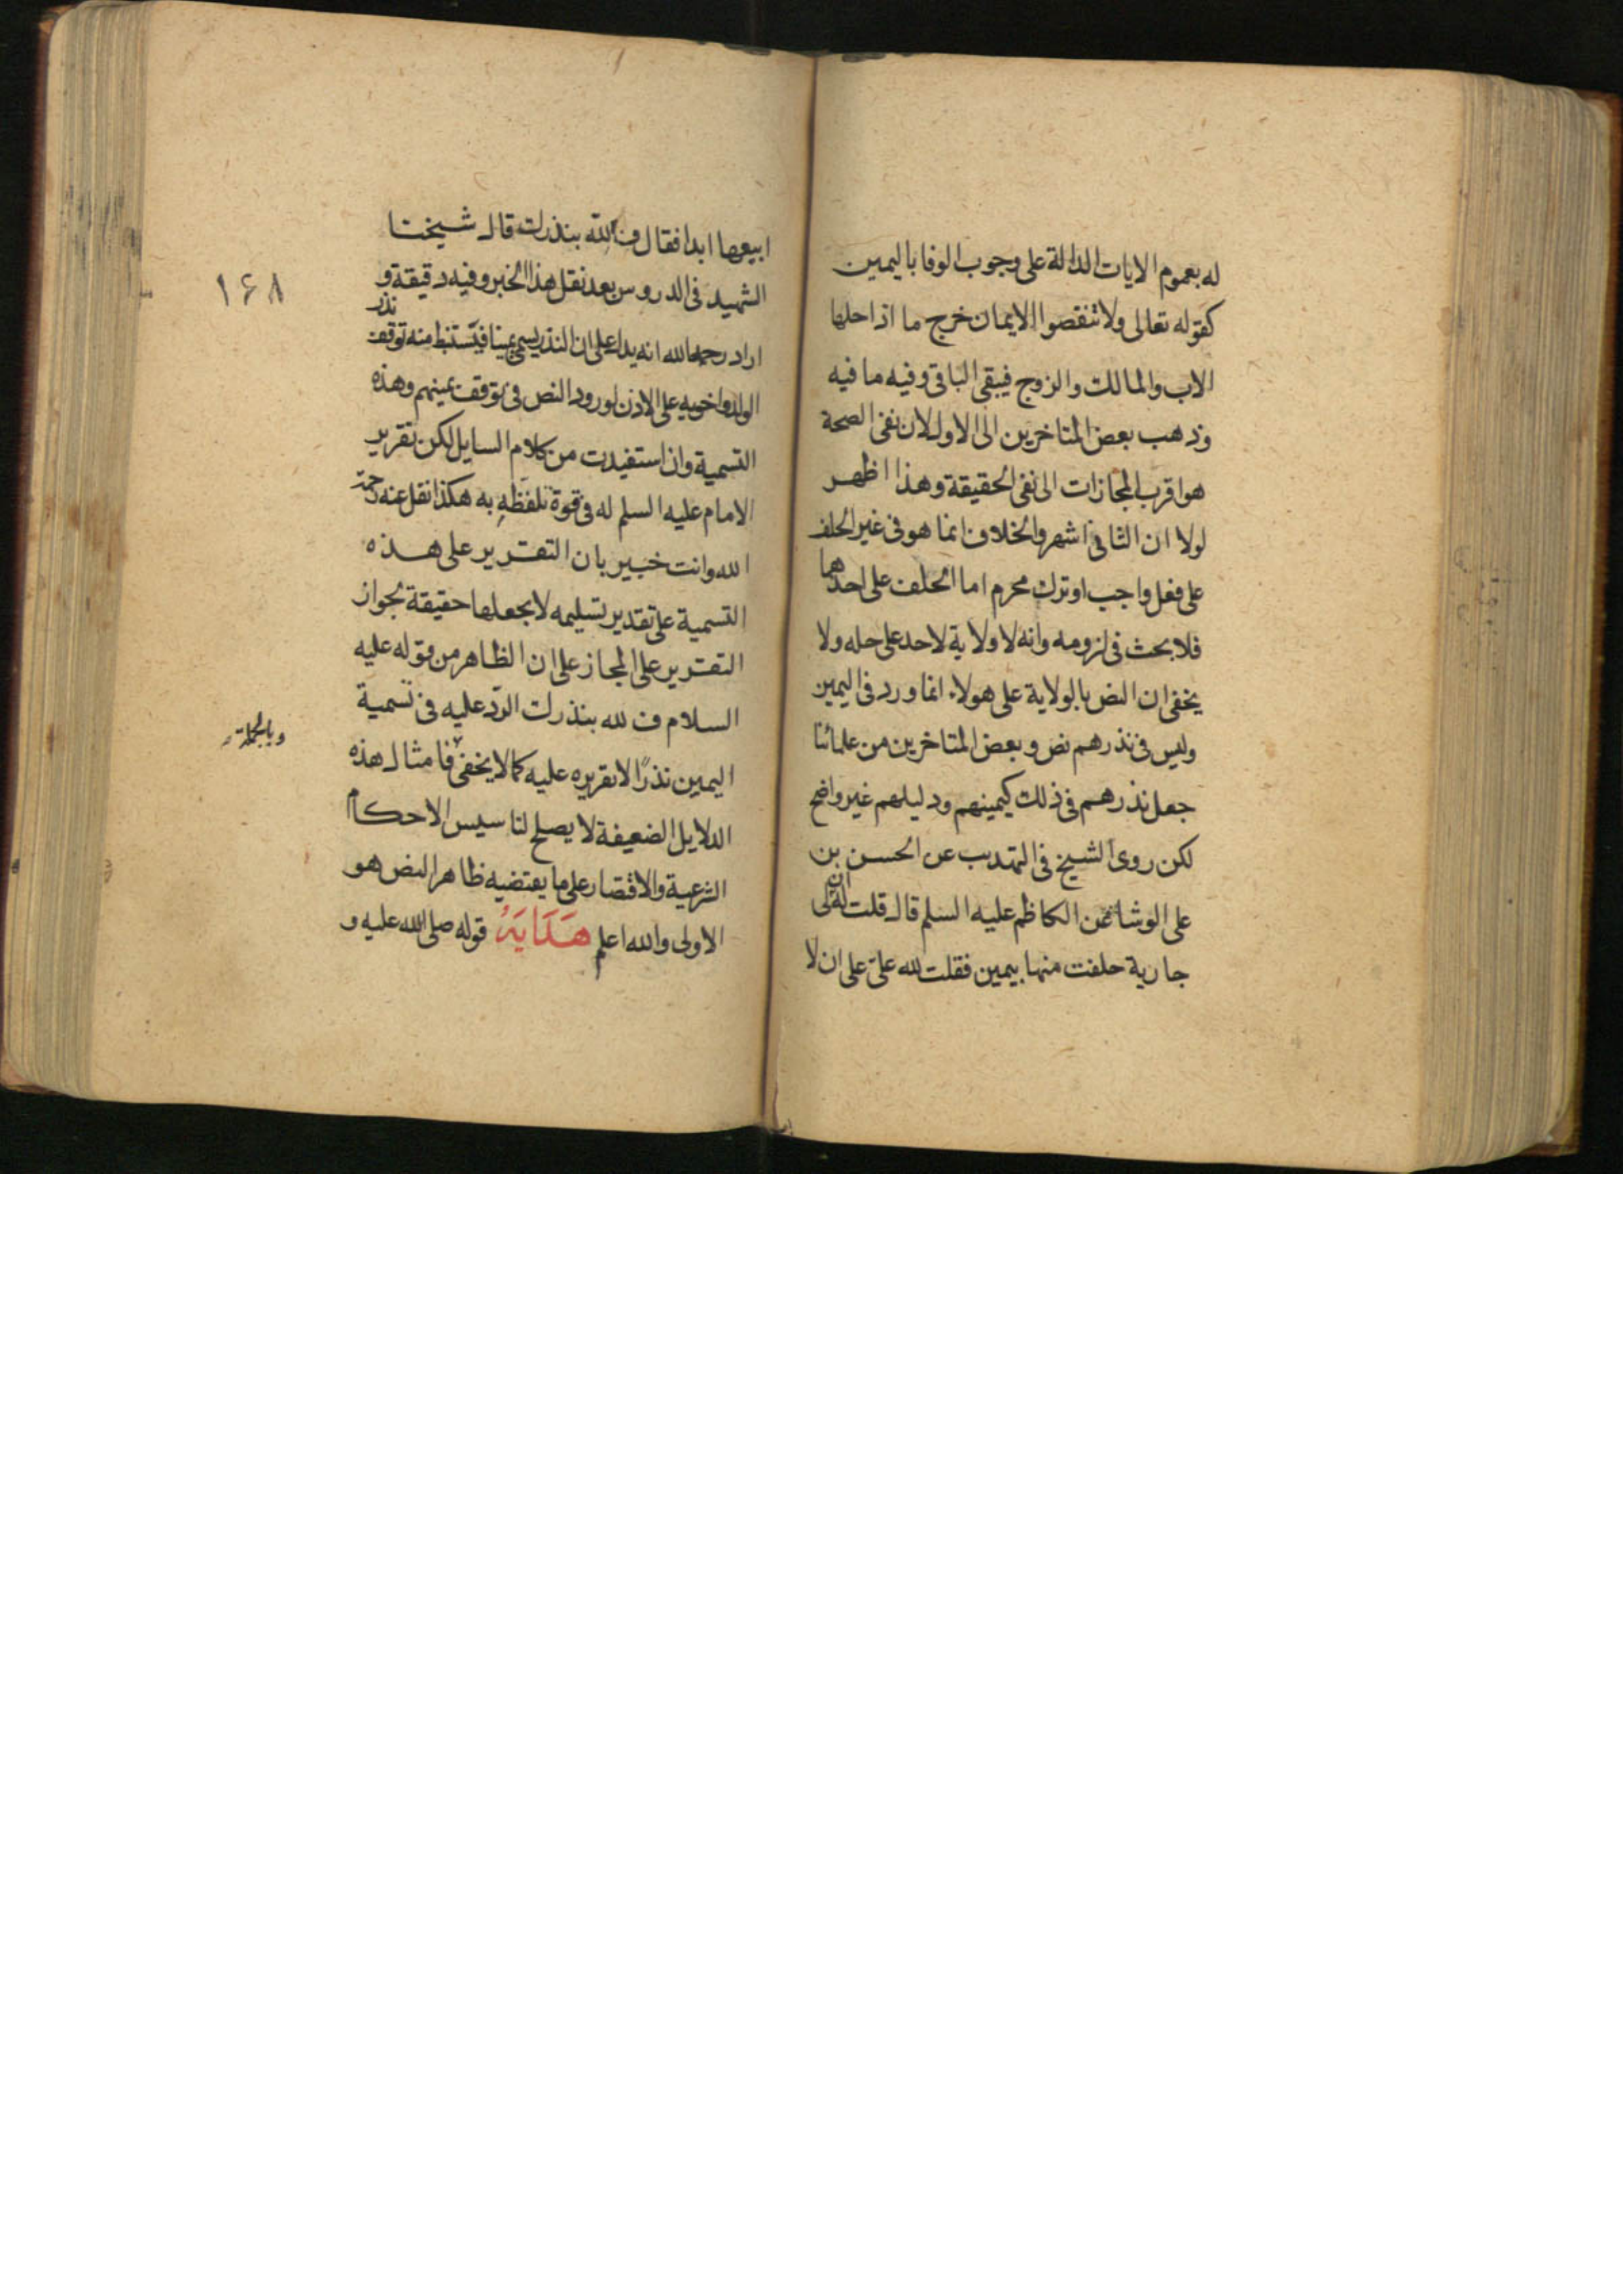 له بعموم الايات الدالة على وجوب الوفا باليمين
كقوله تعالى ولا تنقضوا الايمان خرج ما اذا حلها
الاب والمالك والزوج فيبقى الباقى وفيه ما فيه
وذهب بعض المتاخرين الى الاول لان نفى الصحة
هو اقرب المجازات الى نفى الحقيقة وهذا اظهر
لولا ان الثانى اشهر والخلاف انما هو فى غير الحلف
على فعل واجب او ترك محرم اما الحلف على احدهما
فلا بحث فى لزومه وانه لا ولاية لاحد على حله ولا
يخفى ان النص بالولاية على هولاء انما ورد فى اليمين
وليس فى نذرهم نص وبعض المتاخرين من علمائنا
جعل نذرهم فى ذلك كيمينهم ودليلهم غير واضح
لكن روى الشيخ فى التهذيب عن الحسن بن
على الوشا عن الكاظم عليه السلم قال قلت له ان لى
جارية حلفت منها بيمين فقلت لله على على ان لا
ابيعها ابدا فقال ف لله بنذرك قال شيخنا
الشهيد فى الدروس بعد نقل هذا الخبر وفيه دقيقة و
١٦٨
اراد رحمه الله انه يدل على ان النذر يسمى يمينا فيستنبط منه توقف نذر
الولد واخويه على الاذن لورود النص فى توقف يمينهم وهذه
التسمية وان استفيدت من كلام السايل لكن تقرير
الامام عليه السلم له فى قوة تلفظه به هكذا نقل عنه رحمة
الله وانت خبير بان التقرير على هذه
التسمية على تقدير تسليمه لا يجعلها حقيقة لجواز
التقرير على المجاز على ان الظاهر من قوله عليه
السلام ف لله بنذرك الرد عليه فى تسمية
وبالجملة
اليمين نذرًا لا تقريره عليه كما لا يخفى فامثال هذه
الدلايل الضعيفة لا يصلح لتاسيس الاحكام
الشرعية والاقتصار على ما يقتضيه ظاهر النص هو
الاولى والله اعلم هداية قوله صلى الله عليه و